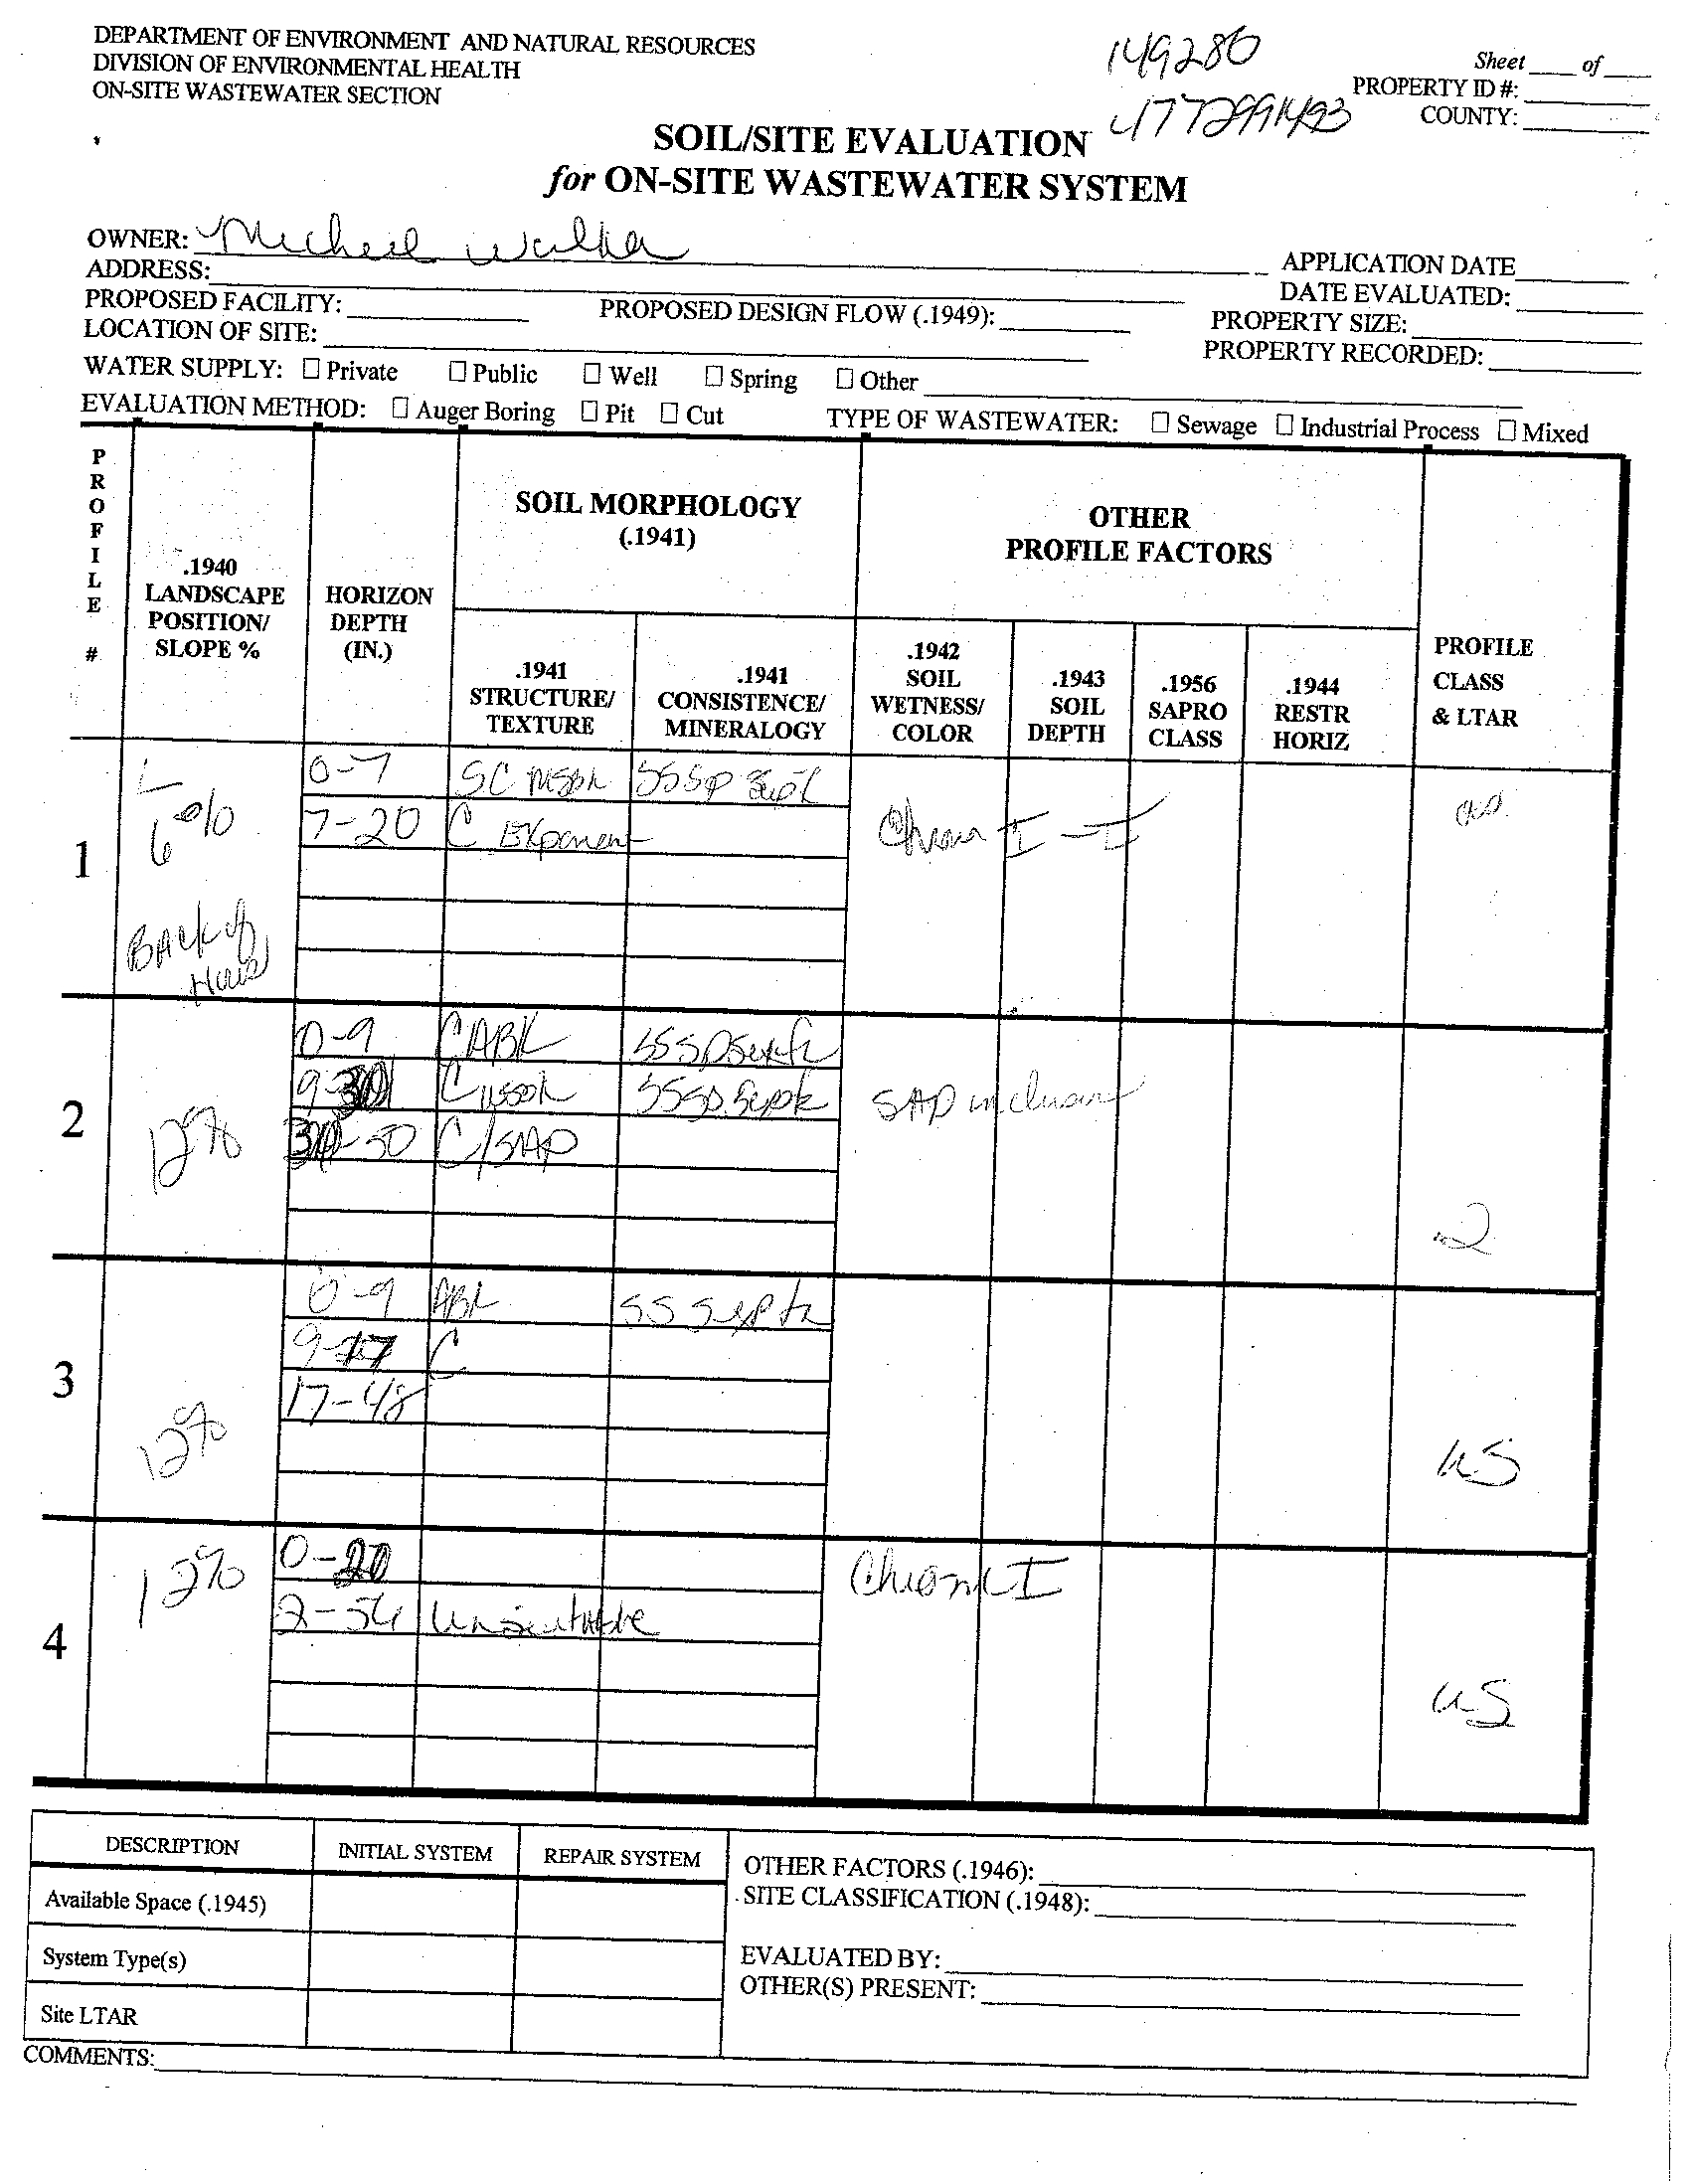 DEPARTMENT OF ENVIRONMENT AND NATURAL RESOURCES
DIVISION OF ENVIRONMENTAL HEALTH
ON-SITE WASTEWATER SECTION
149280
4772991493
Sheet ____ of ____
PROPERTY ID #:
COUNTY:
SOIL/SITE EVALUATION
for ON-SITE WASTEWATER SYSTEM
OWNER: Micheal Walker
ADDRESS:
APPLICATION DATE
PROPOSED FACILITY: PROPOSED DESIGN FLOW (.1949):
DATE EVALUATED:
LOCATION OF SITE:
PROPERTY SIZE:
PROPERTY RECORDED:
WATER SUPPLY: ☐ Private ☐ Public ☐ Well ☐ Spring ☐ Other
EVALUATION METHOD: ☐ Auger Boring ☐ Pit ☐ Cut TYPE OF WASTEWATER: ☐ Sewage ☐ Industrial Process ☐ Mixed
PROFILE #
.1940 LANDSCAPE POSITION/ SLOPE %
HORIZON DEPTH (IN.)
SOIL MORPHOLOGY
(.1941)
.1941 STRUCTURE/ TEXTURE
.1941 CONSISTENCE/ MINERALOGY
OTHER
PROFILE FACTORS
.1942 SOIL WETNESS/ COLOR
.1943 SOIL DEPTH
.1956 SAPRO CLASS
.1944 RESTR HORIZ
PROFILE CLASS & LTAR
1
L
6%
Back of
House
0-7 SC SSSP
7-20 C
2
12%
0-9 CABK SSSP
9-30 C SSSP
30-50 C/SAP
SAP
.2
3
12%
0-9 ABK SS
9-17 C
17-48
US
4
12%
0-20
2-54 Unsuitable
US
DESCRIPTION INITIAL SYSTEM REPAIR SYSTEM
Available Space (.1945)
System Type(s)
Site LTAR
OTHER FACTORS (.1946):
SITE CLASSIFICATION (.1948):
EVALUATED BY:
OTHER(S) PRESENT:
COMMENTS: